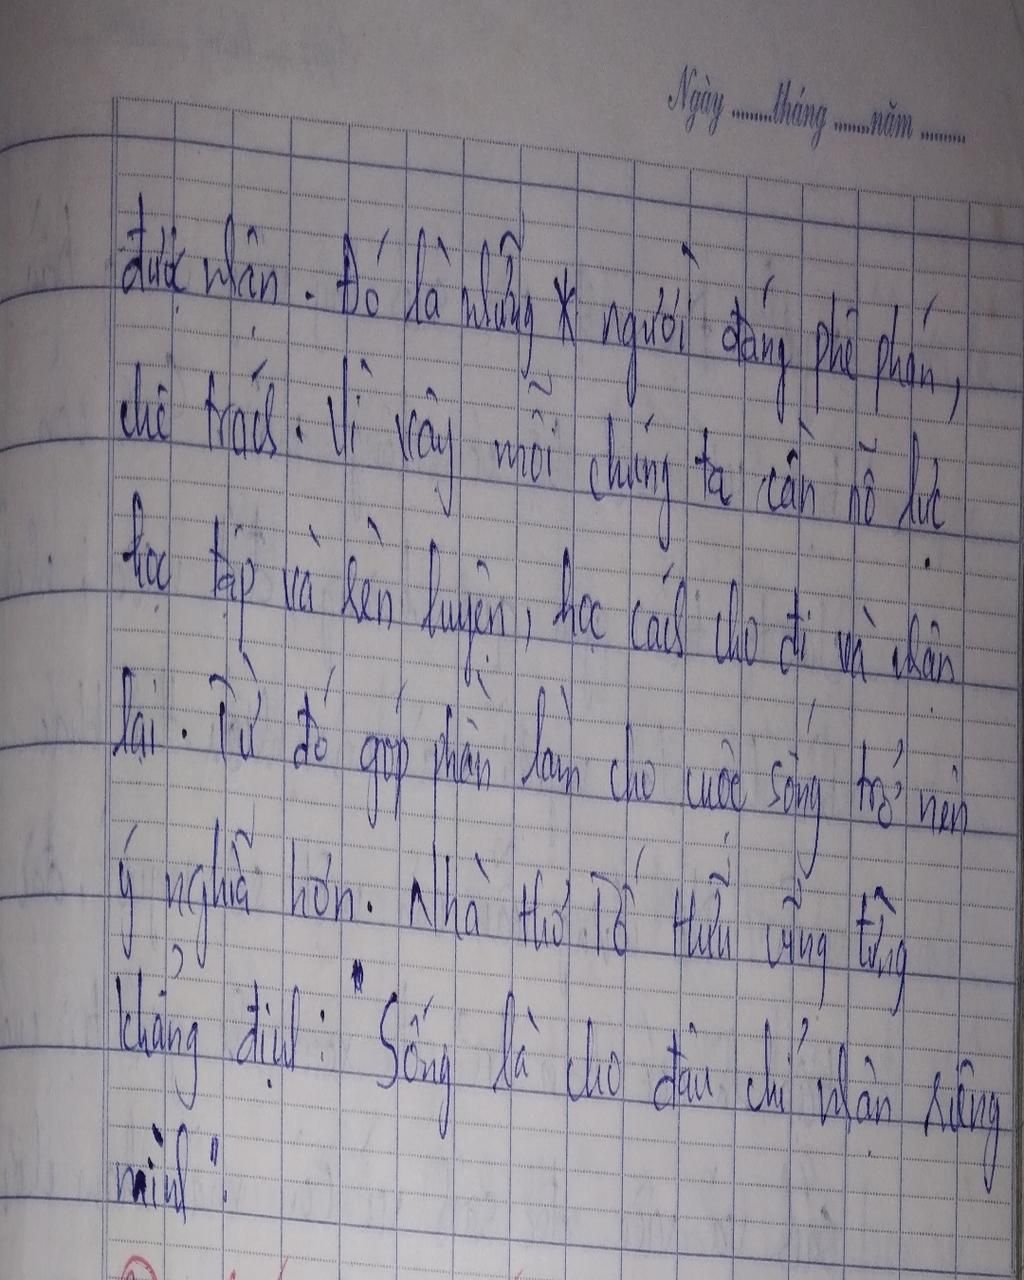 Ngày ........tháng .......năm .........
được nhận. Đó là những người đáng phê phán,
chê trách. Vì vậy mỗi chúng ta cần nỗ lực
học tập và rèn luyện, học cách cho đi và nhận
lại. Từ đó góp phần làm cho cuộc sống trở nên
ý nghĩa hơn. Nhà thơ Tố Hữu cũng từng
khẳng định: "Sống là cho đâu chỉ nhận riêng
mình".